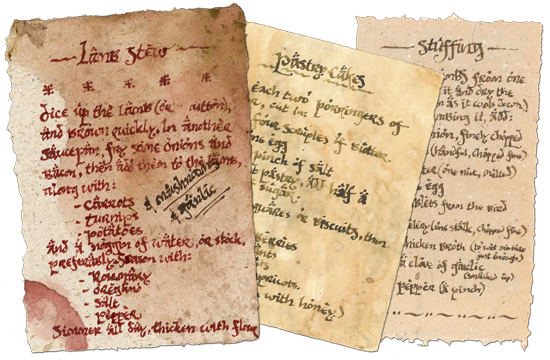 Lamb Stew
Dice up the Lamb (or mutton),
and brown quickly. In another
saucepan, fry some onions and
bacon, then add them to the lamb,
along with:
- carrots
- turnips
- potatoes
& mushrooms
& garlic
and a noggin of water, or stock,
preferably. Season with:
- Rosemary
- oregano
- salt
- pepper
Simmer all day, thicken with flour
Pastry Cakes
each two porringers of
, cut in
four scruples of butter
one egg
pinch of salt
pastry, add half a
sugar
squares or biscuits, then
berries
apricots.
with honey)
Stuffing
from one
it and dry the
as it cools down)
it, add:
onion, finely chopped
(handful, chopped fine)
(one nut, melted)
egg
from the bird
celery (one stalk, chopped fine)
chicken broth (to wet mixture
just enough)
a clove of garlic
pepper (a pinch)